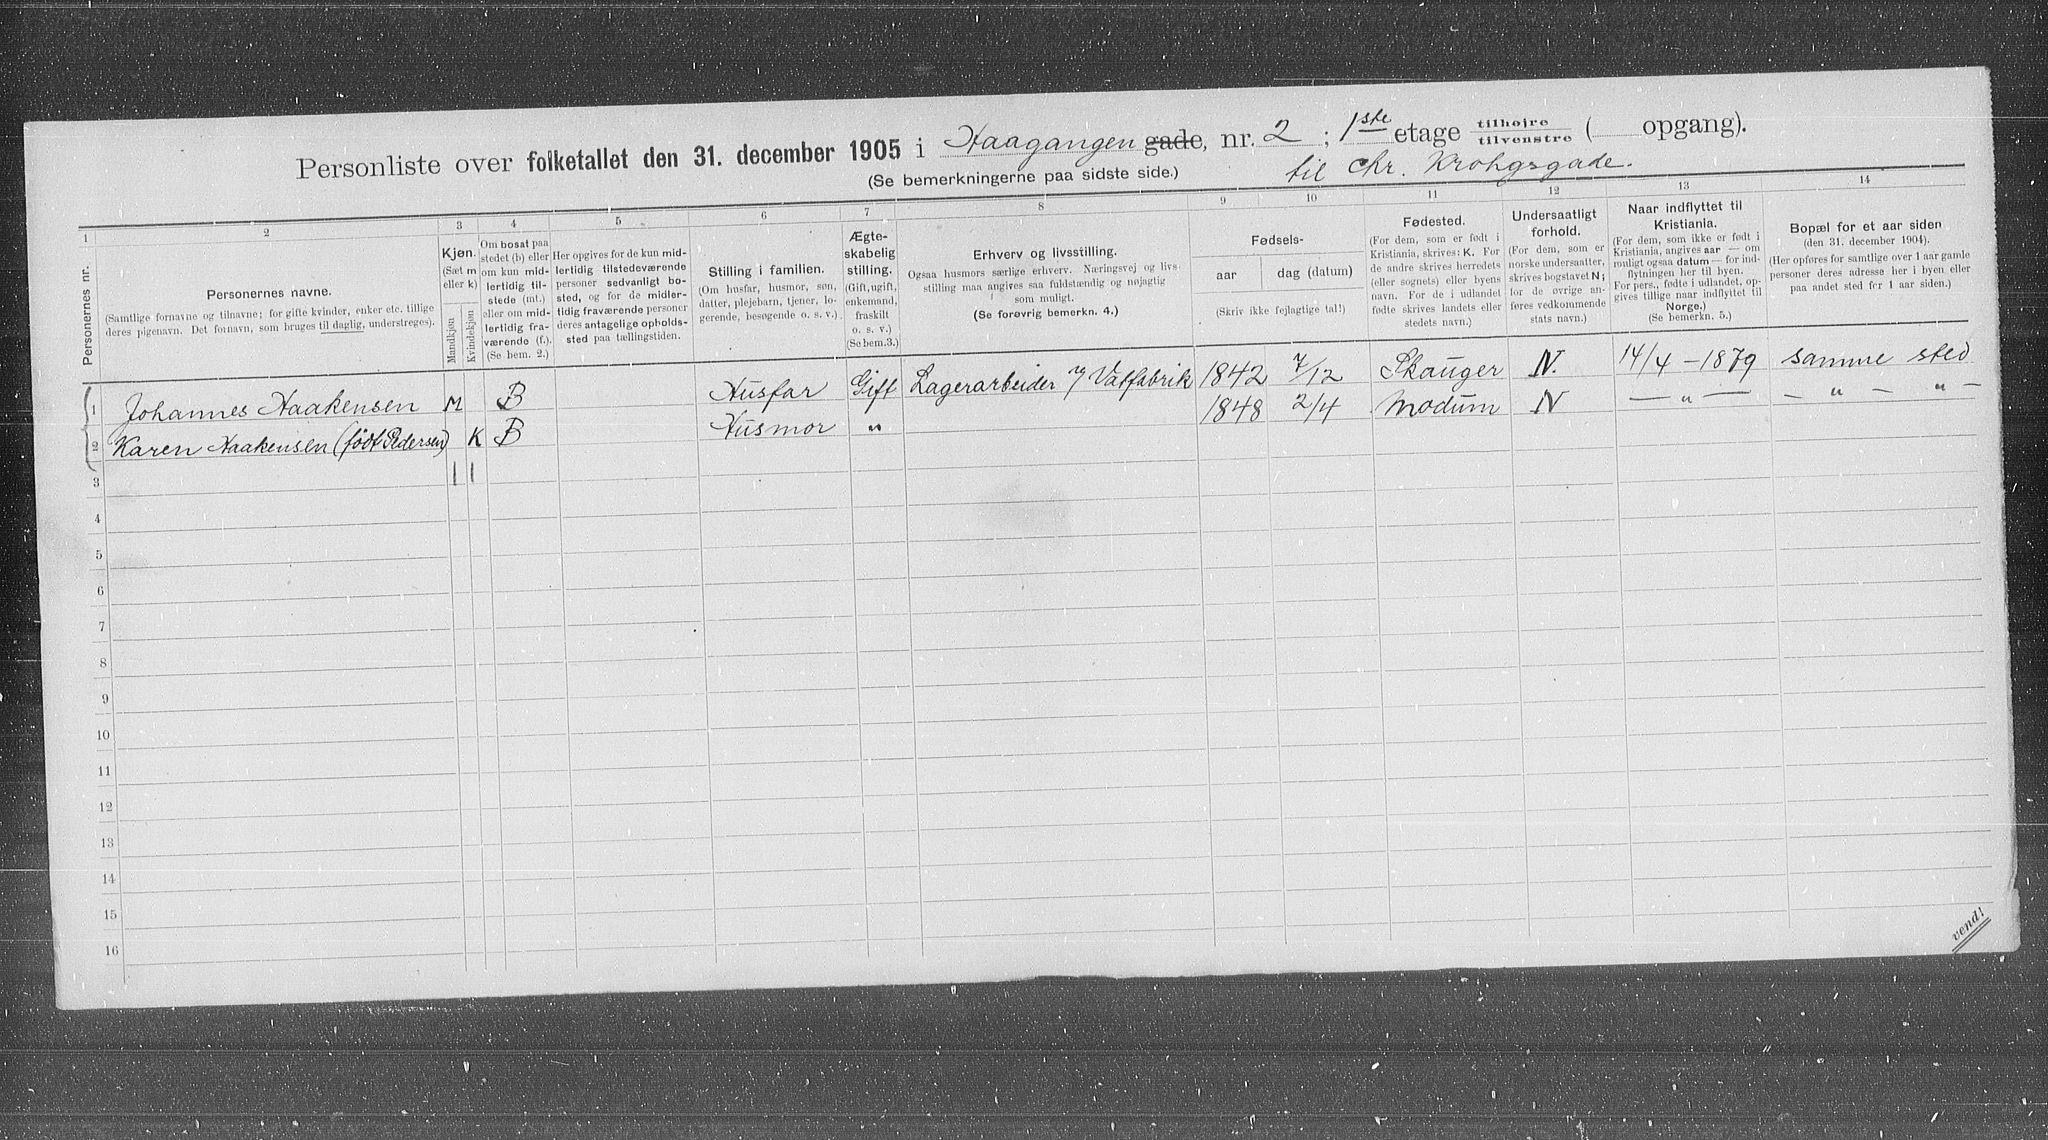 Personliste over folketallet den 31. december 1905 i Haagangen gade, nr. 2 ; 1ste etage tilhøire tilvenstre ( opgang).
(Se bemerkningerne paa sidste side.) til Chr. Krohgsgade.
1 2 3 4 5 6 7 8 9 10 11 12 13 14
Personernes nr.
Personernes navne.
(Samtlige fornavne og tilnavne; for gifte kvinder, enker etc. tillige
deres pigenavn. Det fornavn, som bruges til daglig, understreges).
Kjøn.
(Sæt m
eller k)
Mandkjøn
Kvindekjøn
Om bosat paa
stedet (b) eller
om kun mid-
lertidig til-
stede (mt.)
eller om mid-
lertidig fra-
værende (f.).
(Se bem. 2.)
Her opgives for de kun mid-
lertidig tilstedeværende
personer sedvanligt bo-
sted, og for de midler-
tidig fraværende personer
deres antagelige opholds-
sted paa tællingstiden.
Stilling i familien.
(Om husfar, husmor, søn,
datter, plejebarn, tjener, lo-
gerende, besøgende o. s. v.).
Ægte-
skabelig
stilling.
(Gift, ugift,
enkemand,
fraskilt
o. s. v.)
(Se bem.3.)
Erhverv og livsstilling.
Ogsaa husmors særlige erhverv. Næringsvej og livs-
stilling maa angives saa fuldstændig og nøjagtig
som muligt.
(Se forøvrig bemerkn. 4.)
Fødsels-
aar dag (datum)
(Skriv ikke fejlagtige tal!)
Fødested.
(For dem, som er født i
Kristiania, skrives: K. For
de andre skrives herredets
(eller sognets) eller byens
navn. For de i udlandet
fødte skrives landets eller
stedets navn.)
Undersaatligt
forhold.
(For dem, som er
norske undersaatter,
skrives bogstavet N;
for de øvrige an-
føres vedkommende
stats navn.)
Naar indflyttet til
Kristiania.
(For dem, som ikke er født i
Kristiania, angives aar — om
mulig ogsaa datum — for ind-
flytningen her til byen.
For pers., fødte i udlandet, op-
gives tillige naar indflyttet til
Norge.)
(Se bemerkn. 5.)
Bopæl for et aar siden
(den 31. december 1904).
(Her opføres for samtlige over 1 aar gamle
personer deres adresse her i byen eller
paa andet sted for 1 aar siden.)
1 Johannes Haakensen M B Husfar Gift Lagerarbeider Vatfabrik 1842 7/12 Skauger N. 14/4 - 1879 samme sted
2 Karen Haakensen (født Pedersen) K B Husmor " 1848 2/4 Modum N — " — — " — " —
3 | |
4
5
6
7
8
9
10
11
12
13
14
15
16
vend!